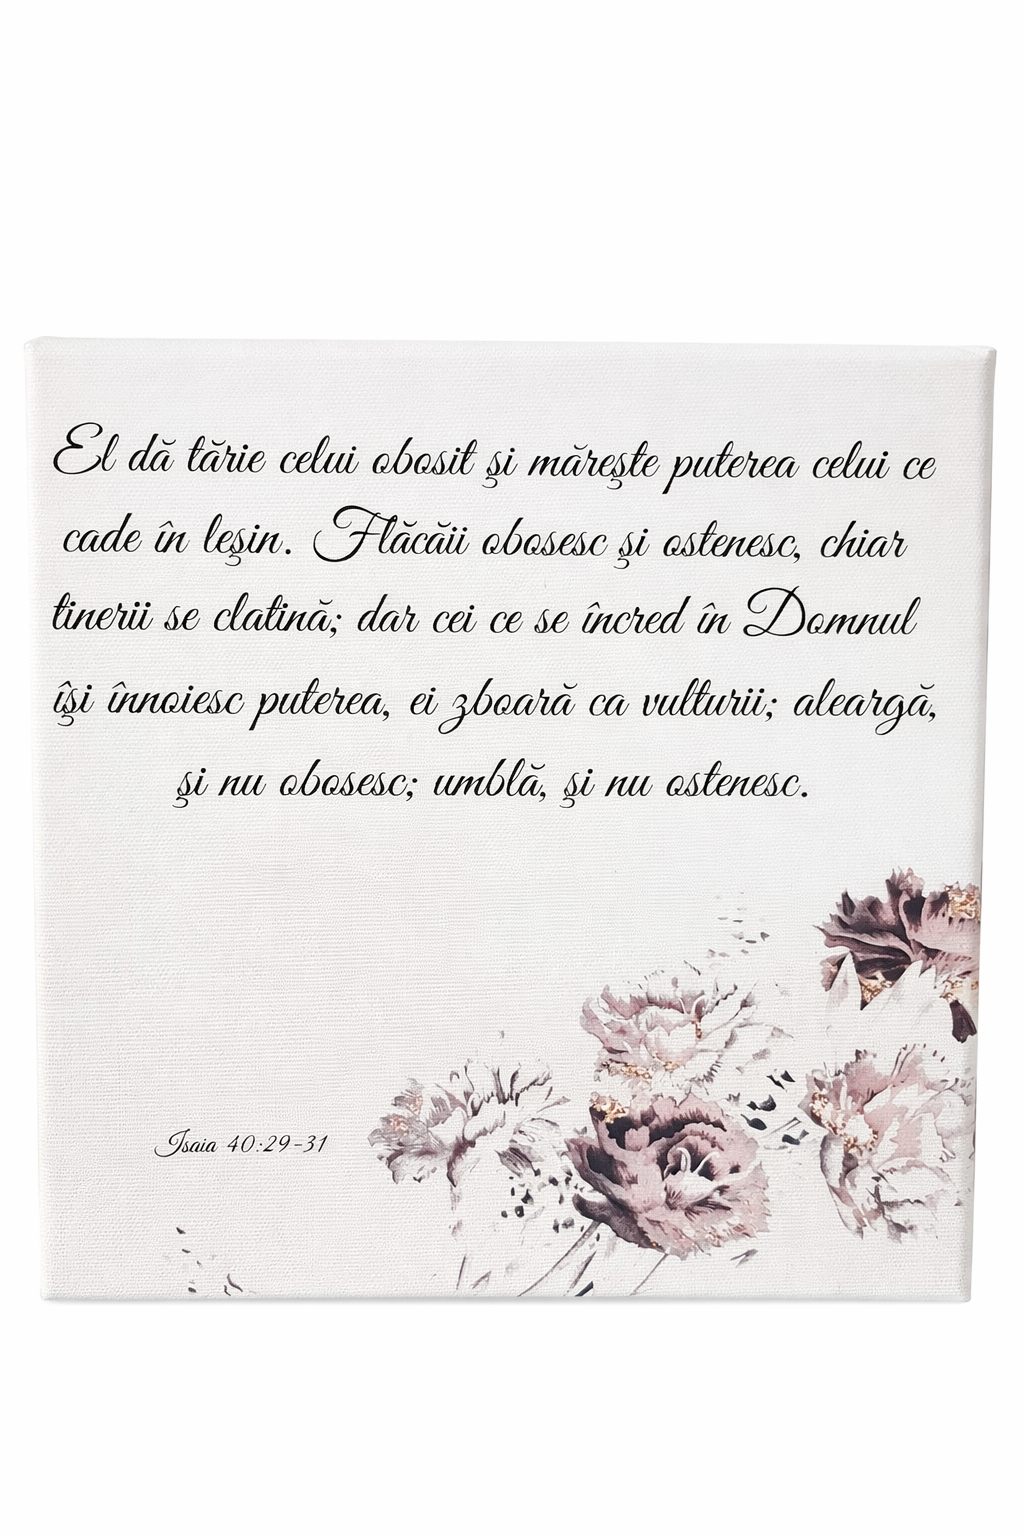 El dă tărie celui obosit şi măreşte puterea celui ce
cade în leşin. Flăcăii obosesc şi ostenesc, chiar
tinerii se clatină; dar cei ce se încred în Domnul
îşi înnoiesc puterea, ei zboară ca vulturii; aleargă,
şi nu obosesc; umblă, şi nu ostenesc.
Isaia 40:29-31